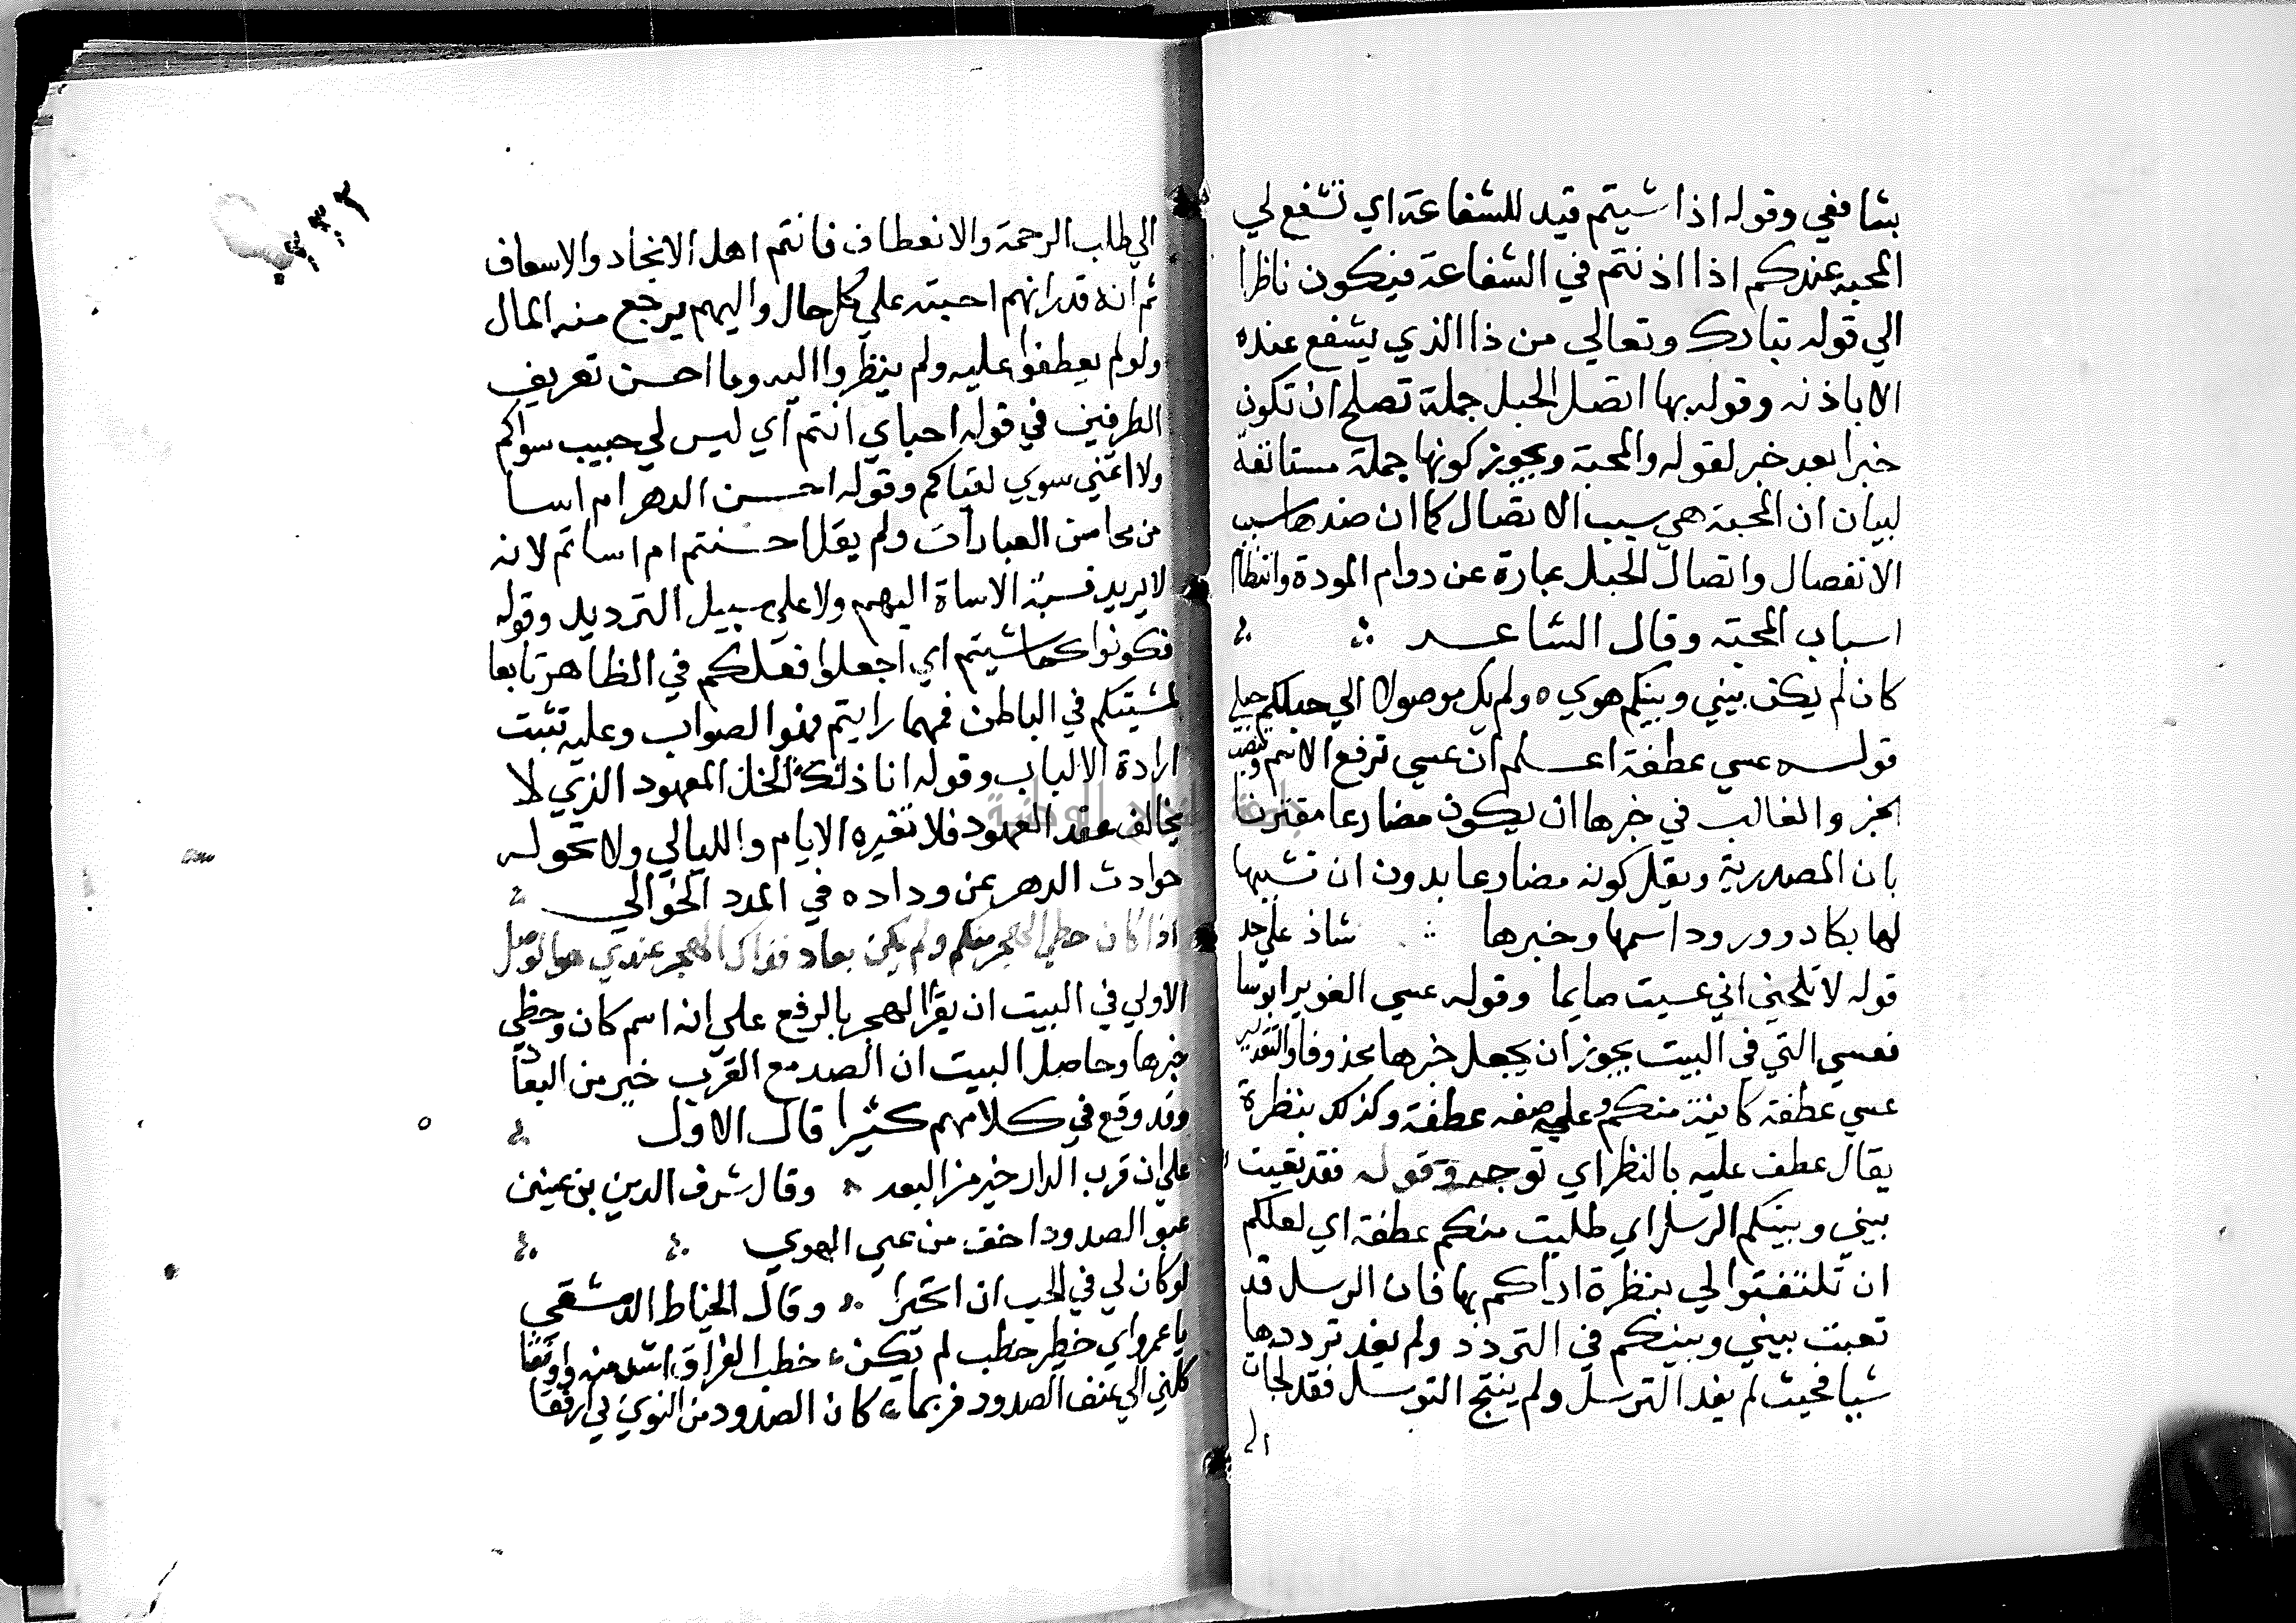 بشافعي وقوله اذا شيتم قيد للشفاعة اي تشفع لي
المحبه عندكم اذا اذنتم في الشفاعة فيكون ناظرا
الي قوله تبارك وتعالي من ذا الذي يشفع عنده
الا باذنه وقوله بها اتصل الحبل جملة تصلح ان تكون
خبرا بعد خبر لقوله والمحبة ويجوز كونها جملة مستانفة
لبيان ان المحبة هي سبب الاتصال كما ان ضدها سبب
الانفصال واتصال الحبل عبارة عن دوام المودة وانتظام
اسباب المحبته وقال الشاعر
كان لم يكن بيني وبينكم هوي ولم يك موصولا الي حبلكم حبلي
قوله عسي عطفة اعلم ان عسي ترفع الاسم وتنصب
الخبر والغالب في خبرها ان يكون مضارعا مقترنا
بان المصدرية ويقل كونه مضارعا بدون ان تشبيها
لها بكاد وورود اسمها وخبرها شاذ علي حد
قوله لا تلحني اني عسيت صايما وقوله عسي الغوير ابوسا
فعسي التي في البيت يجوز ان يجعل خبرها محذوفا والتقدير
عسي عطفة كاينة منكم وعلي صفه عطفة وكذلك بنظرة
يقال عطف عليه بالنظر اي توجه وقوله فقد تعبت
بيني وبينكم الرسل اي طلبت منكم عطفة اي لعلكم
ان تلتفتوا لي بنظرة اراكم بها فان الرسل قد
تعبت بيني وبينكم في التردد ولم يفد ترددها
شيا فحيث لم يفد الترسل ولم ينتج التوسل فقد لجات
الي
الي طلب الرحمة والانعطاف فانتم اهل الانجاد والاسعاف
ثم انه قدر انهم احبته علي كل حال واليهم يرجع منه المال
ولو لم يعطفوا عليه ولم ينظروا اليه وما احسن تعريف
الطرفين في قوله احباي انتم اي ليس لي حبيب سواكم
ولا اعني سوي لقياكم وقوله احسن الدهر ام اسا
من محاسن العبارات ولم يقل احسنتم ام اساتم لانه
لا يريد نسبة الاساة اليهم ولا علي سبيل الترديد وقوله
فكونوا كما شيتم اي اجعلوا فعلكم في الظاهر تابعا
لمشيتكم في الباطن فمهما رايتم فهو الصواب وعليه تثبت
ارادة الالباب وقوله انا ذلك الخل المعهود الذي لا
يخالف عقد العهود فلا تغيره الايام والليالي ولا تحوله
حوادث الدهر عن وداده في المدد الخوالي
اذا كان حظي الهجر منكم ولم يكن بعاد فذاك الهجر عندي هو الوصل
الاولي في البيت ان يقرا الهجر بالرفع علي انه اسم كان وحظي
خبرها وحاصل البيت ان الصد مع القرب خير من البعاد
وقد وقع في كلامهم كثيرا قال الاول
علي ان قرب الدار خير من البعد وقال شرف الدين بن عنين
عبو الصدود اخف من عبي الهوي
لو كان لي في الحب ان اتخيرا وقال الخياط الدمشقي
يا عمرو اي خطير خطب لم يكن خطب الفراق اشد منه واوبقا
كلني الي عنف الصدود فربما كان الصدود من النوي لي ارفقا